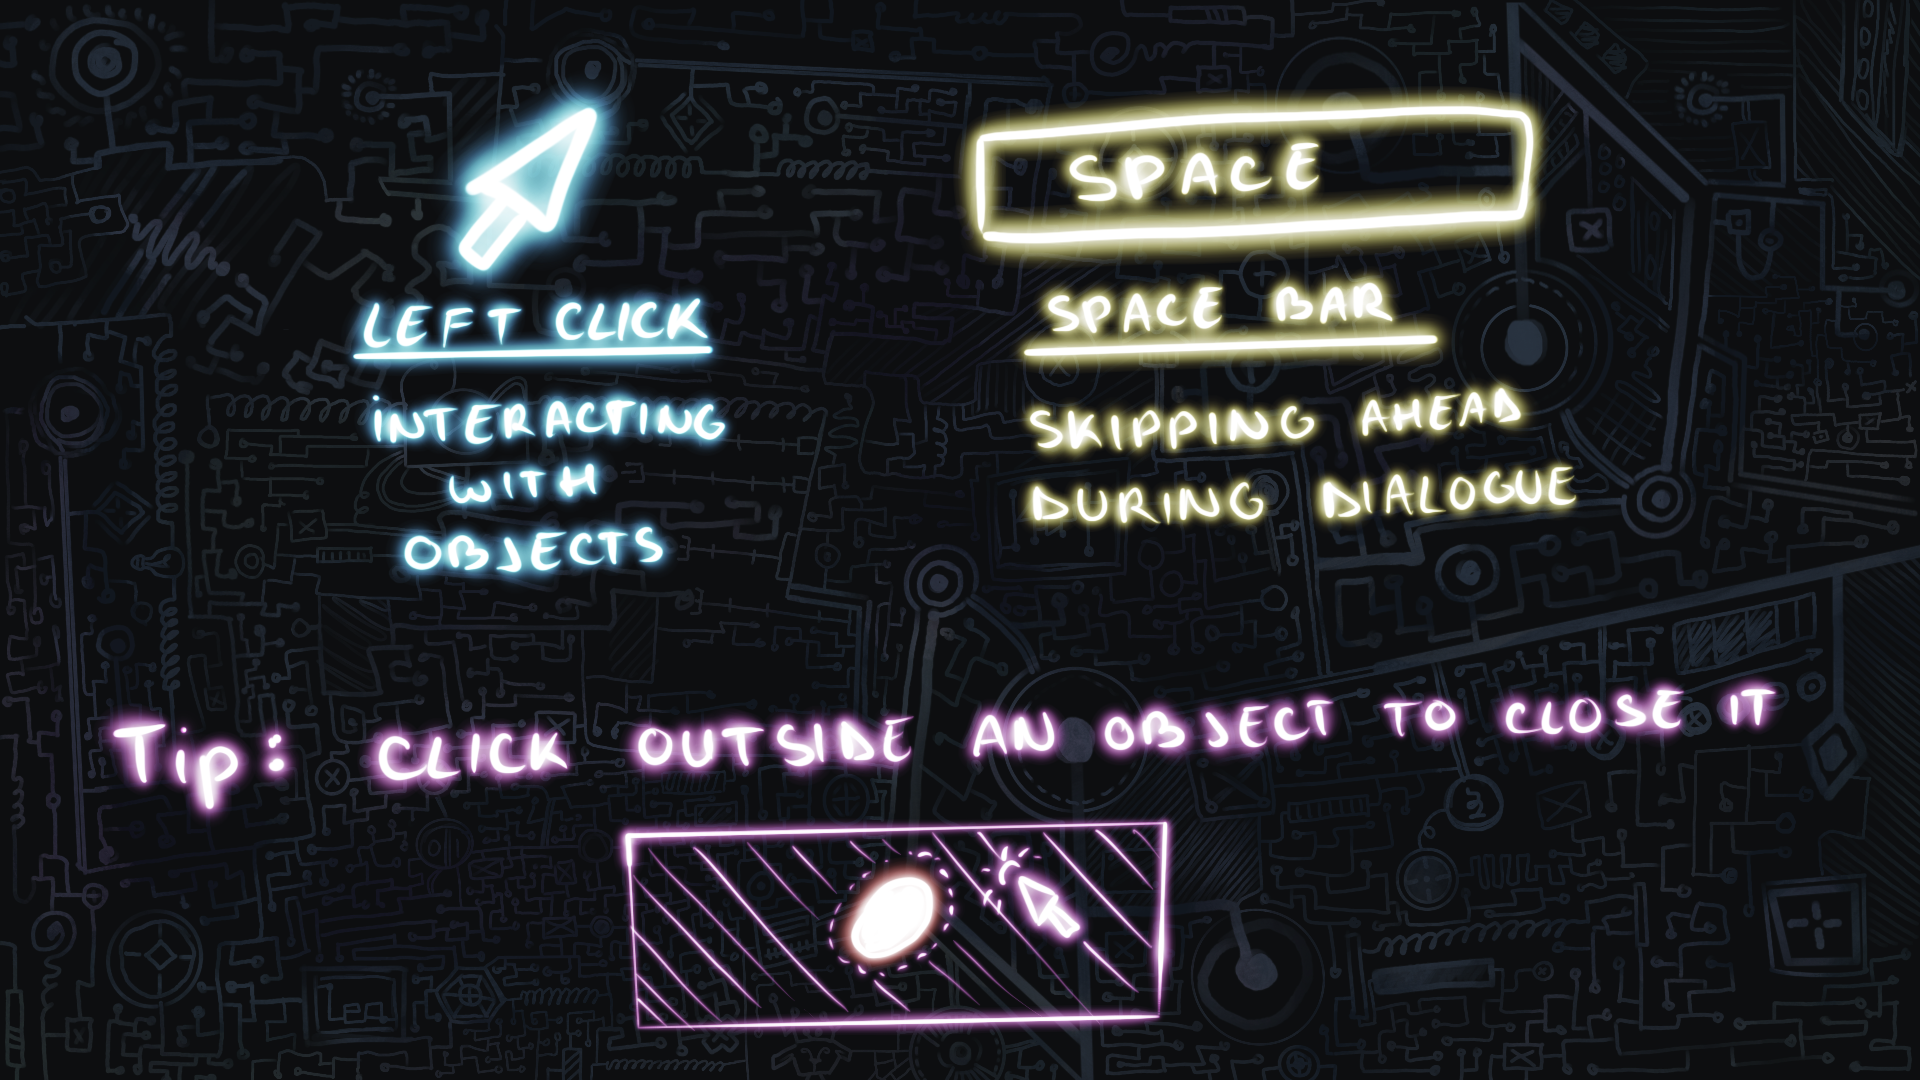 LEFT CLICK
iNTERACTING
WITH
OBJECTS
SPACE
SPACE BAR
SKIPPING AHEAD
DURING DIALOGUE
Tip: CLICK OUTSIDE AN OBJECT TO CLOSE IT